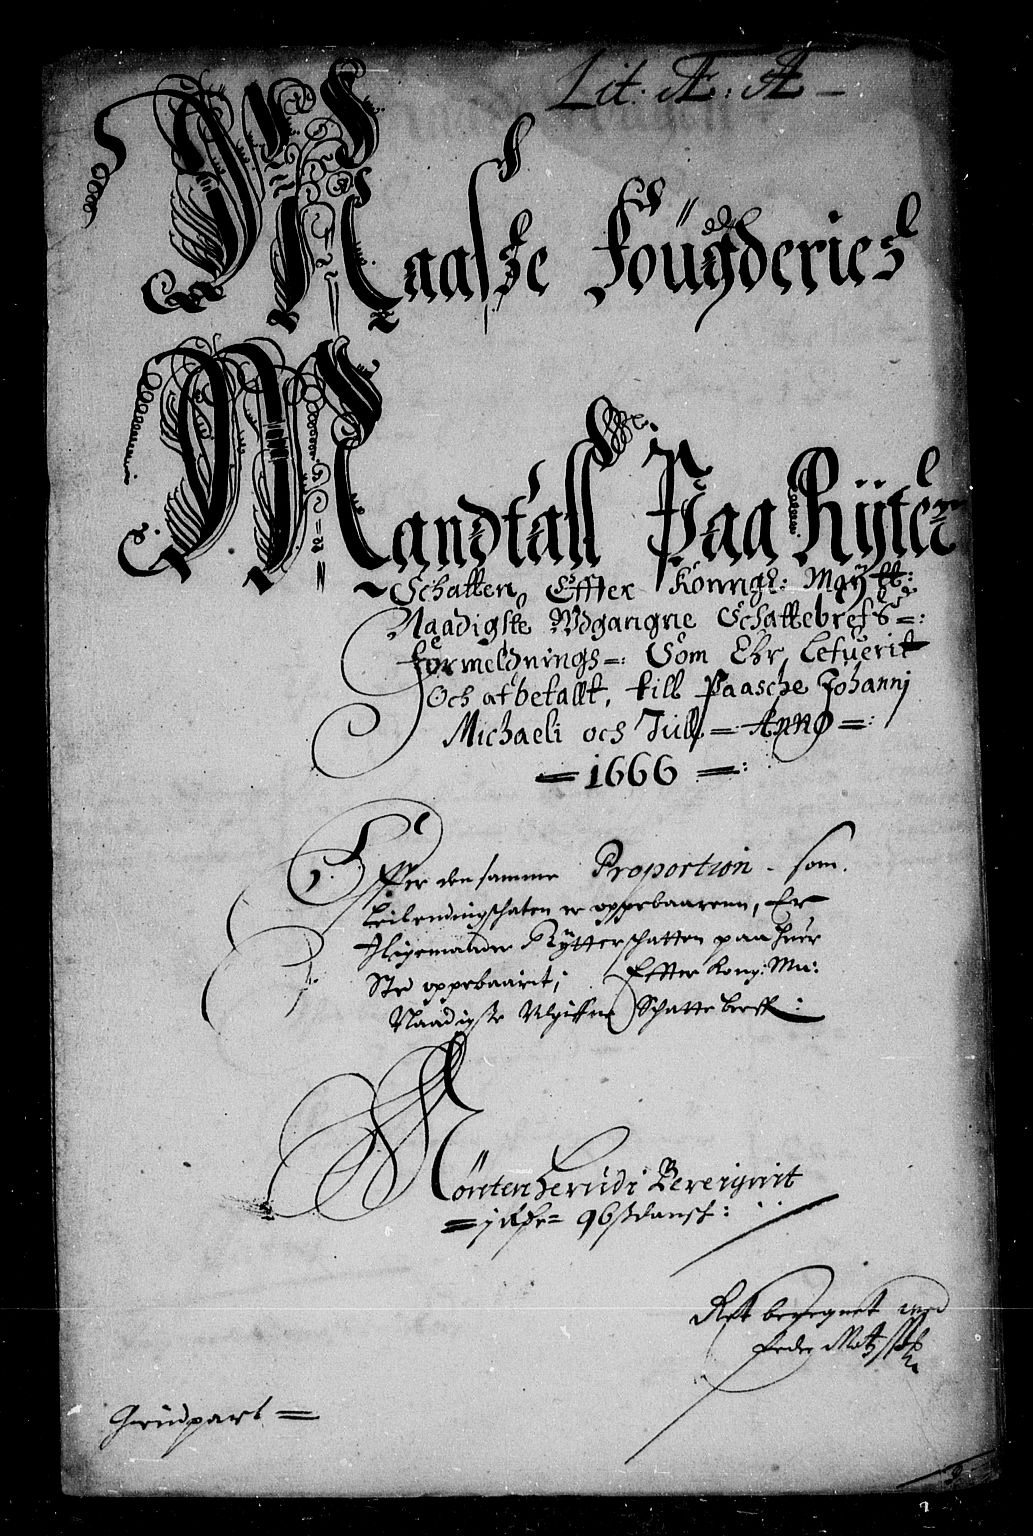 Lit: Æ: Æ —
Maasse fougderies
Mandtall Paa Rÿter
Schatten, Effter Konngl: Maÿtt:
Naadigste Wdgangne Schattebrefs =:
formeldnings =: Som Ehr, Lefuerit
Och afbetallt, till Paasche Johannj
Michaeli och Jull = Anno =:
= 1666 =:
Effter den samme Proportion som
leilendingschaten er oppebaarenn, Er
Rÿtterschatten paa huer
Sted oppebaarit; Effter Kong: Ma:
Naadigste Schatte breff:
Mönten
=
beregnet
Peder
Grudpart =